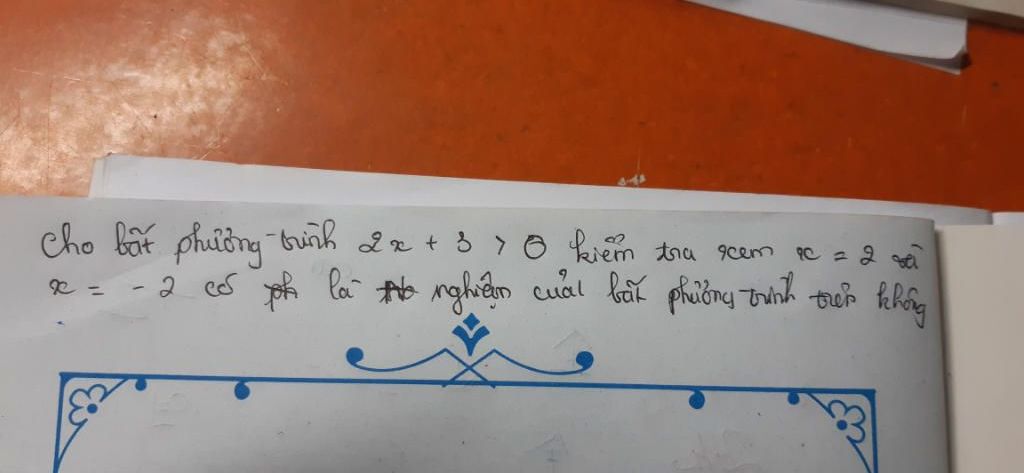 Cho bất phương trình 2x + 3 > 0 kiểm tra xem x = 2 và
x = - 2 có là nghiệm của bất phương trình trên không